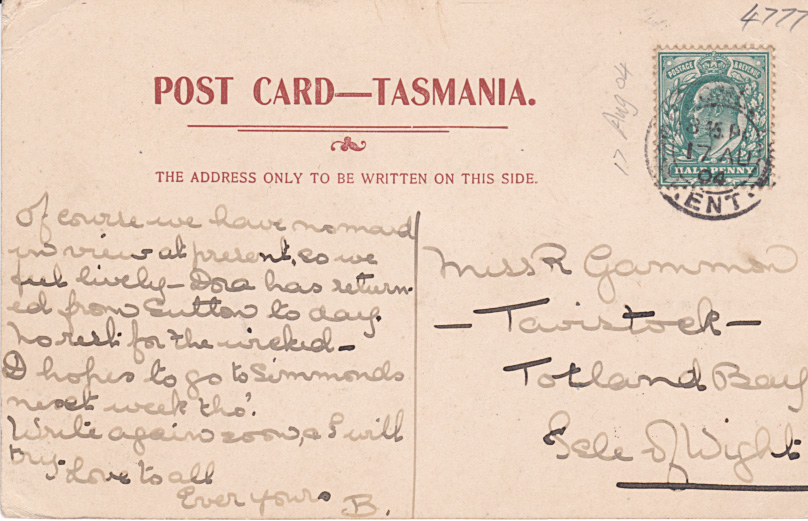 4777
POST CARD—TASMANIA.
17 Aug 04
POSTAGE & REVENUE
8 15 P
17 AU
04
HALF PENNY
. ENT .
THE ADDRESS ONLY TO BE WRITTEN ON THIS SIDE.
Of course we have no maid
in view at present, so we
feel lively – Dora has return-
ed from Sutton to day.
No rest for the wicked –
D hopes to go to Simmonds
next week tho'.
Write again soon, & I will
try. Love to all
Ever yours B.
Miss R Gammon
– Tavistock –
Totland Bay
Isle of Wight